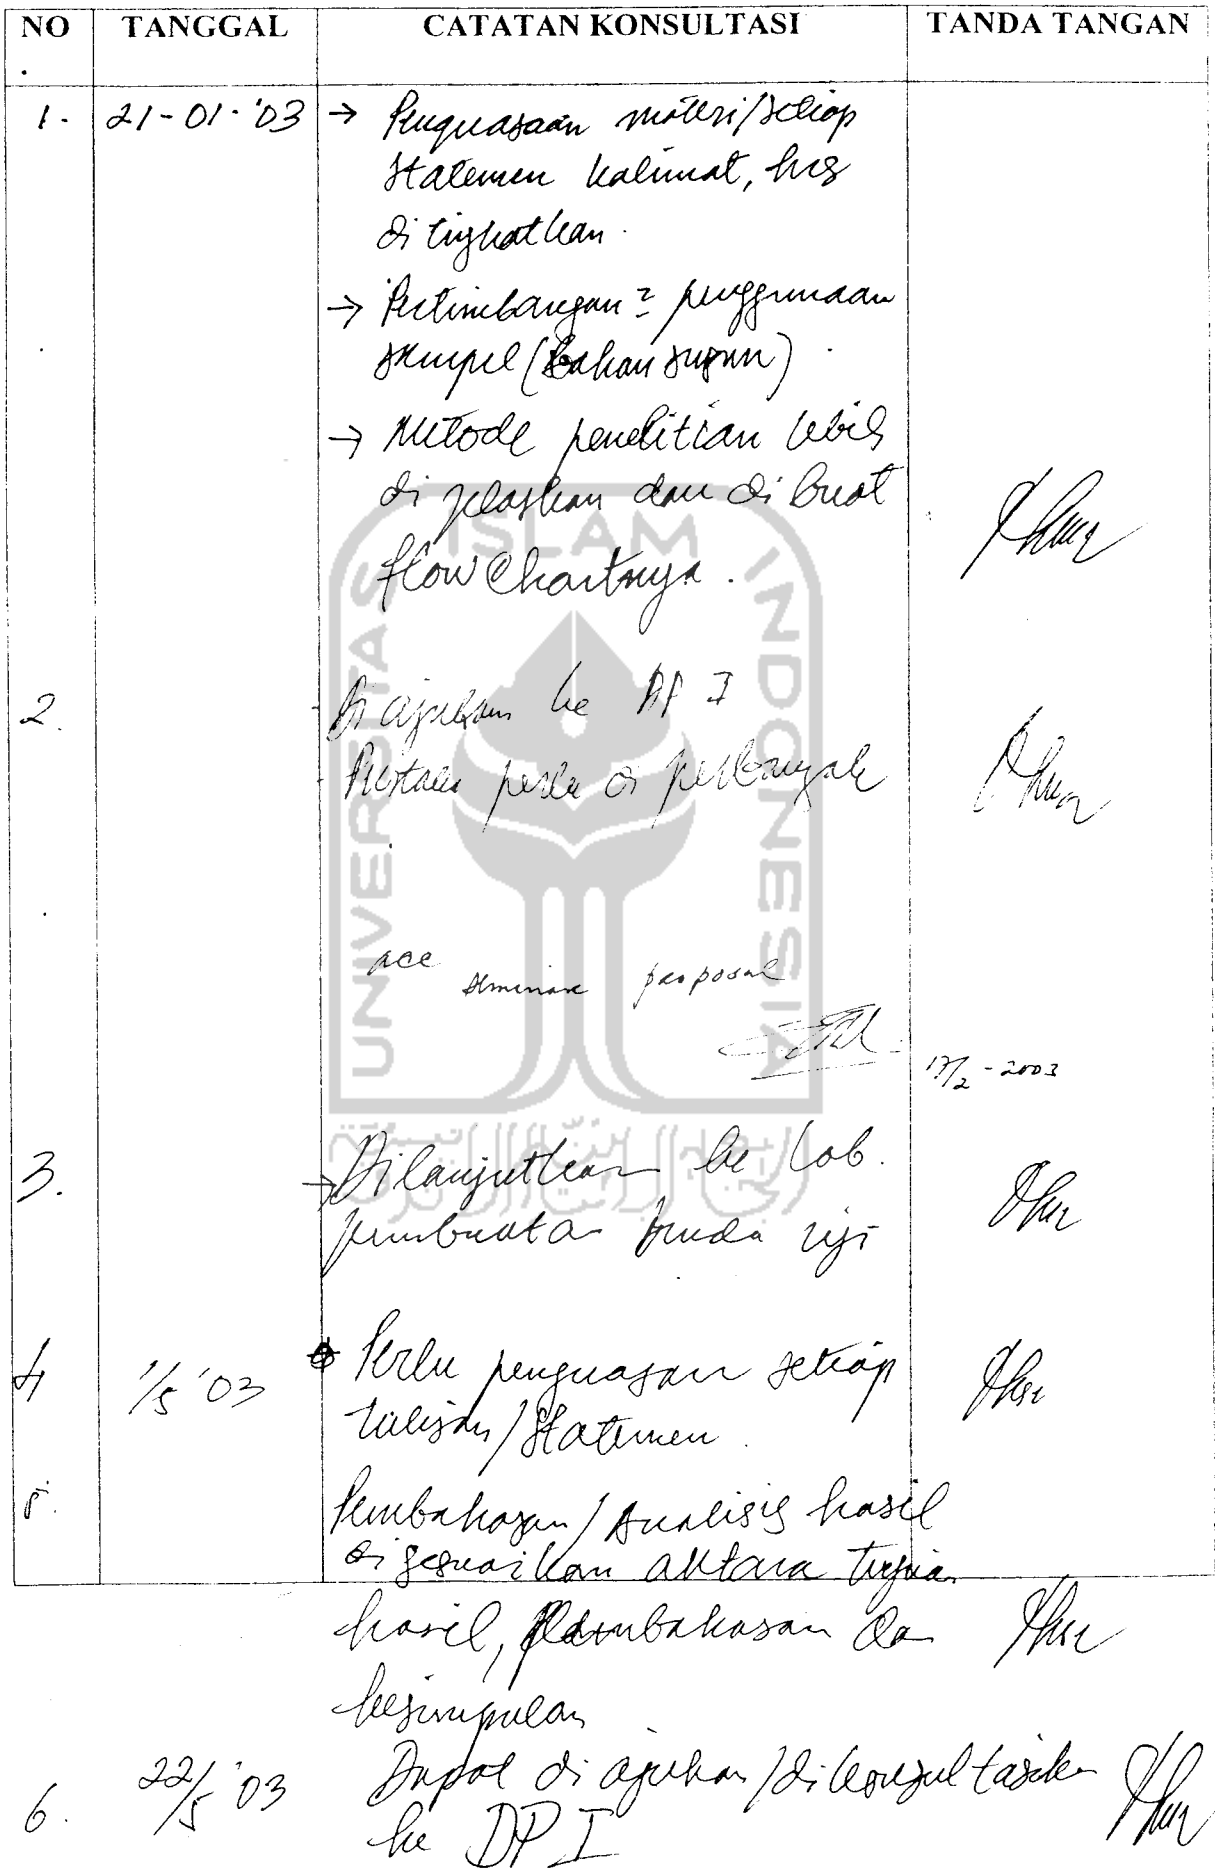 NO TANGGAL CATATAN KONSULTASI TANDA TANGAN
.
1. 21-01-'03 → Penguasaan materi/setiap
statemen kalimat, hrs
ditingkatkan.
→ Pertimbangan2 penggunaan
sampel (bahan susun)
→ Metode penelitian lebih
di jelaskan dan di buat
flow Chartnya.
2. Di ajukan ke DP I
Pustaka perlu di perbanyak
acc seminar proposal
17/2 - 2003
3. → Dilanjutkan ke lab.
pembuatan benda uji
4 1/5 '03 Perlu penguasaan setiap
tulisan/statemen.
5. Pembahasan/Analisis hasil
di sesuaikan antara tujuan
hasil, pembahasan dan
kesimpulan
6. 22/5 '03 Dapat di ajukan/dikonsultasikan
ke DP I
UNIVERSITAS ISLAM INDONESIA